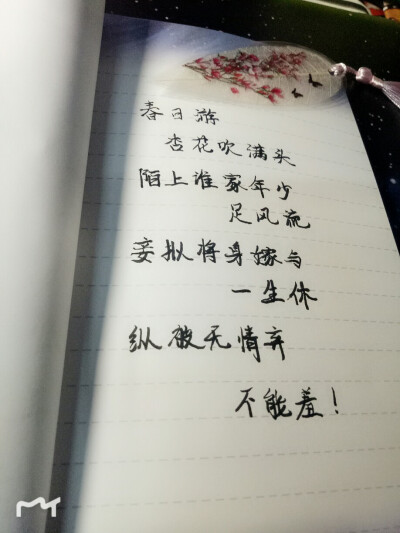 春日游
杏花吹满头
陌上谁家年少
足风流
妾拟将身嫁与
一生休
纵被无情弃
不能羞！